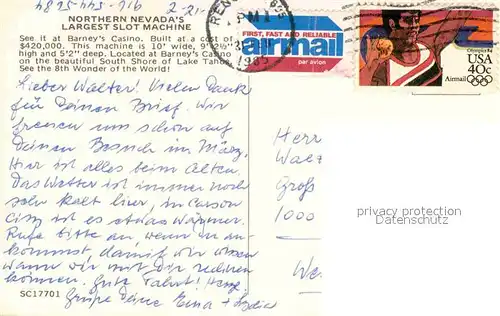 2-21-
NORTHERN NEVADA'S
LARGEST SLOT MACHINE
See it at Barney's Casino. Built at a cost of
$420,000. This machine is 10' wide, 9'2½"
high and 5'2" deep. Located at Barney's Casino
on the beautiful South Shore of Lake Tahoe.
See the 8th Wonder of the World!
RENO
PM
1985
FIRST, FAST AND RELIABLE
airmail
par avion
Olympics 84
USA
40c
Airmail
Lieber Walter! Vielen Dank
für Deinen Brief. Wir
freuen uns schon auf
Deinen Besuch im März.
Hier ist alles beim Alten.
Das Wetter ist immer noch
sehr kalt hier, in Carson
City ist es etwas wärmer.
Rufe bitte an, wenn Du an-
kommst, damit wir wissen
wann wir mit Dir rechnen
können. Gute Fahrt! Herzl.
Grüße Deine Erna +
SC17701
Herr
Walz
Groß
1000
We
privacy protection
Datenschutz